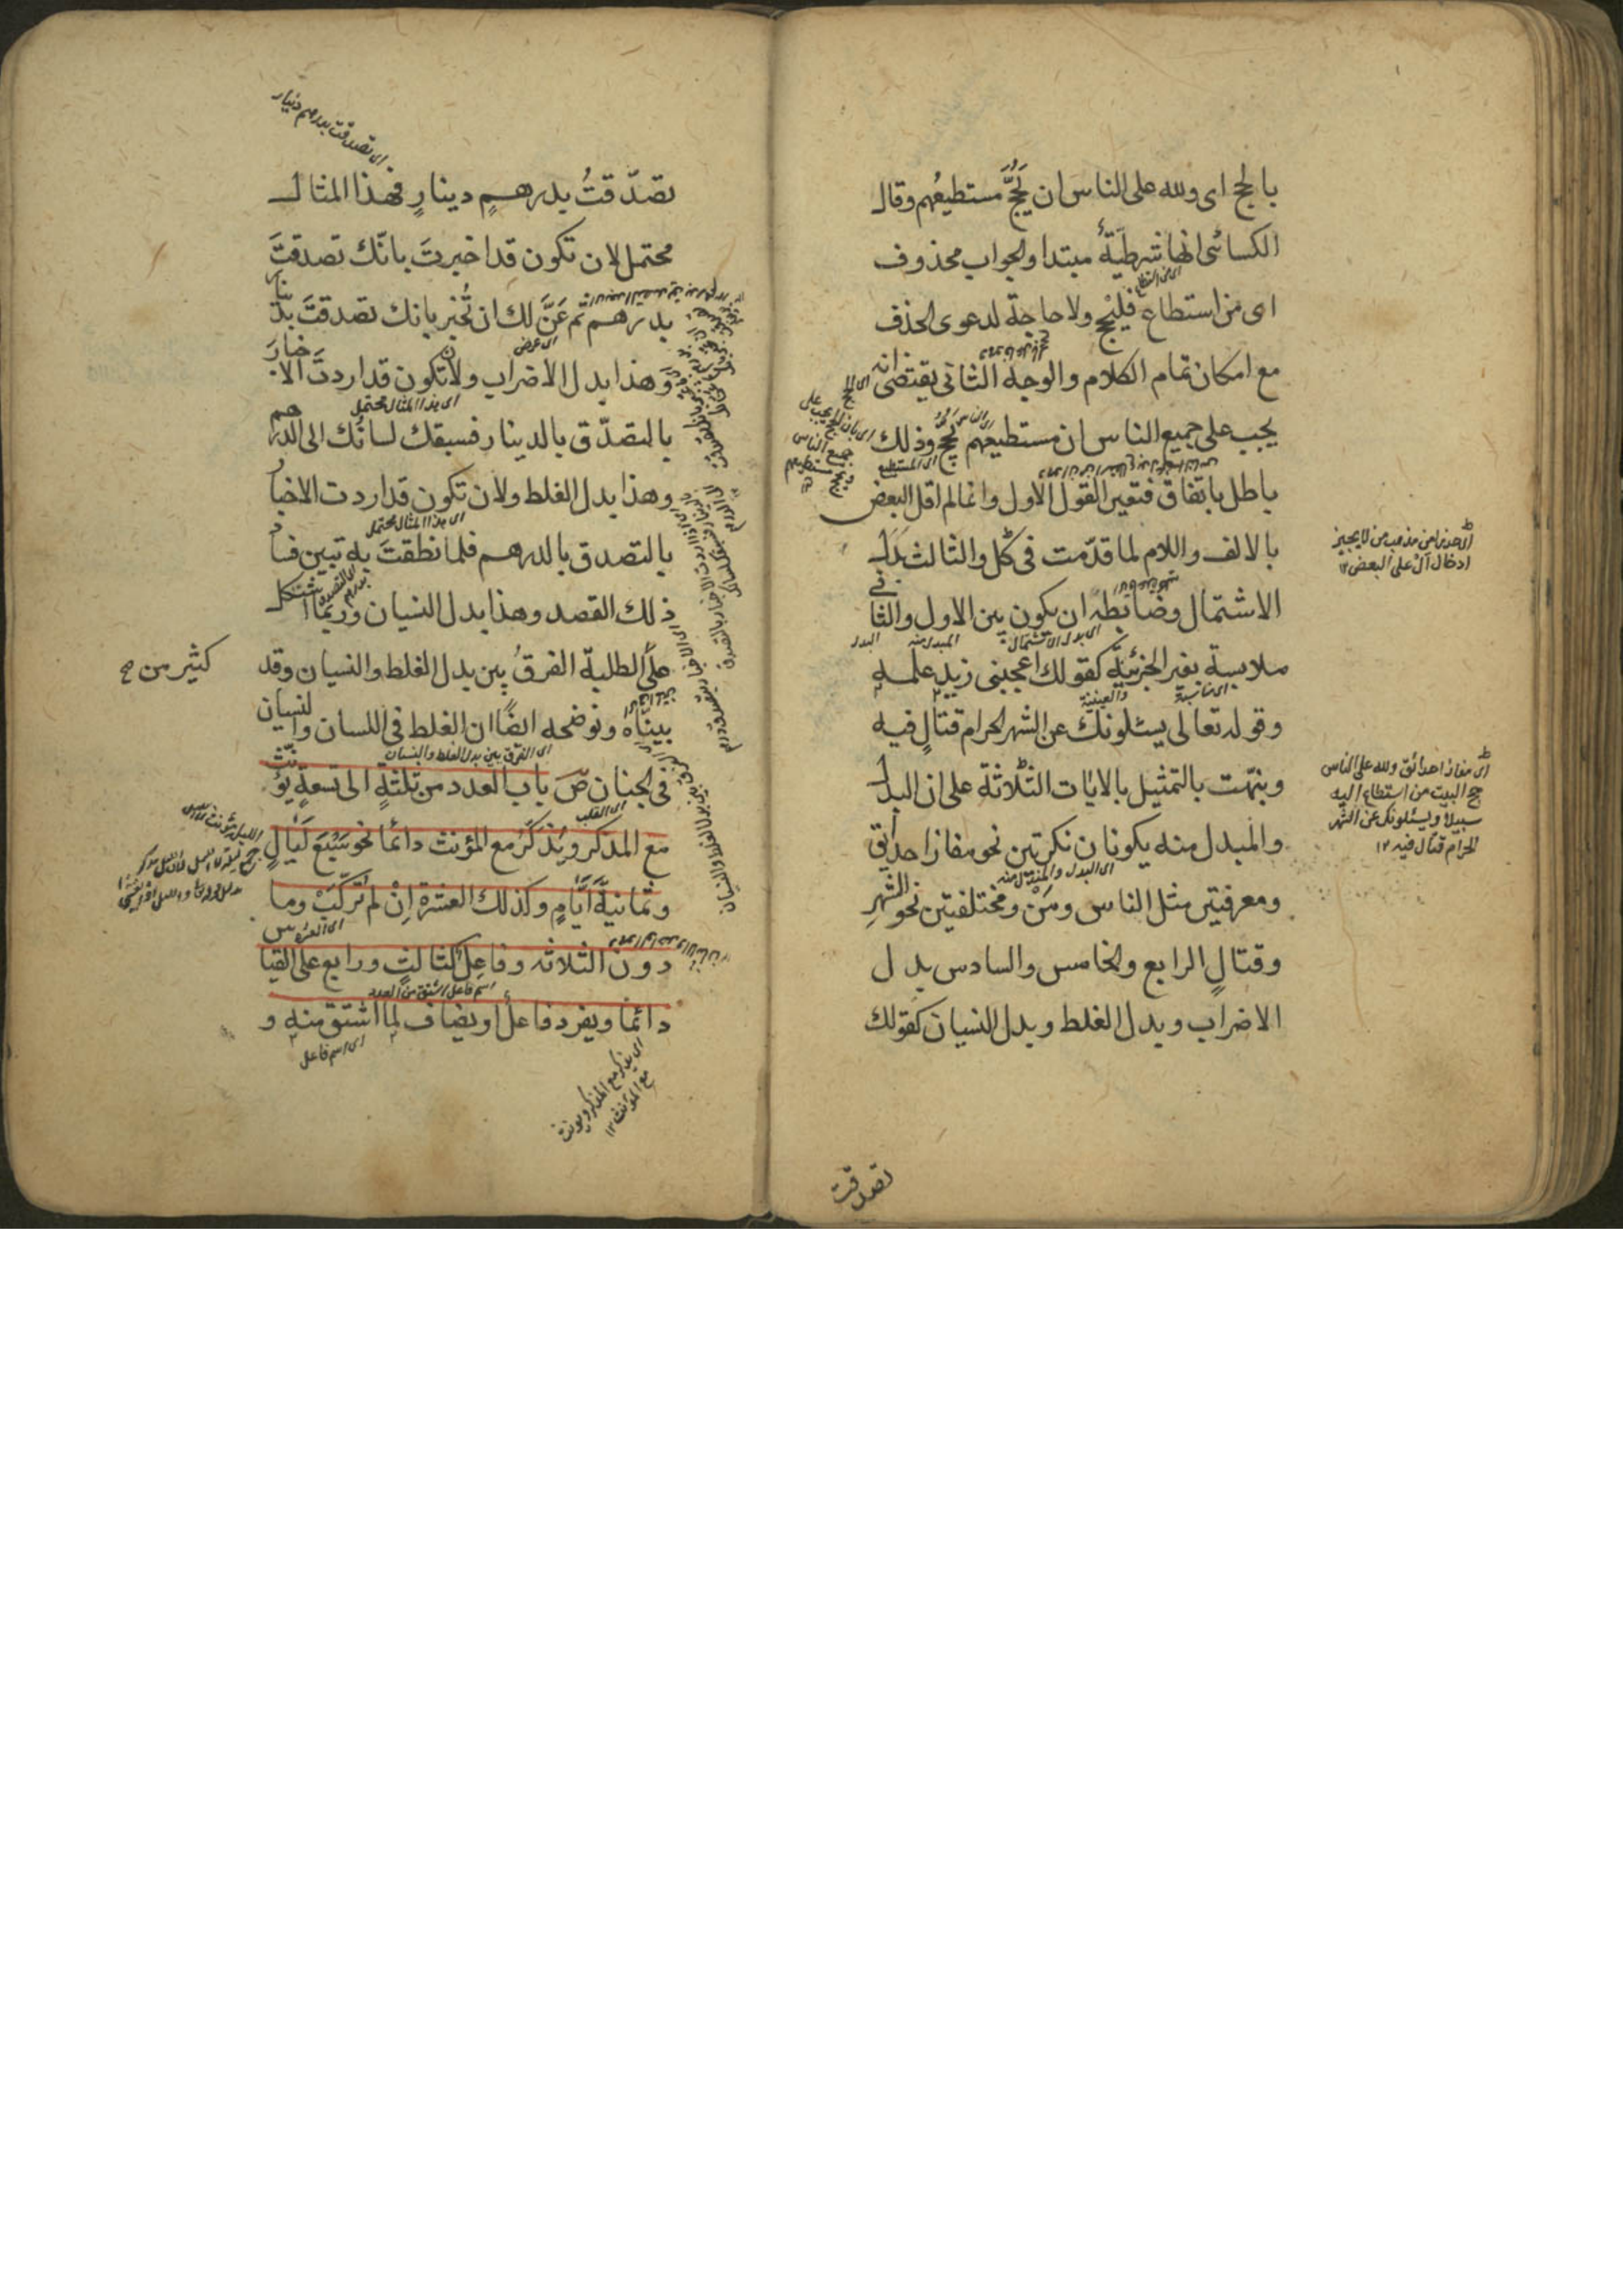 بالحج اى ولله على الناس ان يَحُجَّ مستطيعُهم وقال
الكسائى انها شرطيّة مبتدا والجواب محذوف
اى من استطاع فليحج ولا حاجة لدعوى الحذف
مع امكان تمام الكلام والوجه الثانى يقتضى انه
يجب على جميع الناس ان مستطيعهم يحج وذلك
باطل باتفاق فتعين القول الاول وانما لم اقل البعض
بالالف واللام لما قدّمت فى كل والثالث بَدَل
الاشتمال وضابطه ان يكون بين الاول والثانى
ملابسة بغير الجزئيّة كقولك اعجبنى زيد علمه
وقوله تعالى يسئلونك عن الشهر الحرام قتالٍ فيه
ونبّهت بالتمثيل بالايات الثلاثة على ان البدل
والمبدل منه يكونان نكرتين نحو مفازا حدائق
ومعرفتين مثل الناس ومَنْ ومختلفتين نحو الشهرِ
وقتالٍ الرابع والخامس والسادس بدل
الاضراب وبدل الغلط وبدل النسيان كقولك
اى هذا من مذهب من لا يجيز
ادخال ال على البعض ١٢
اى مفازا حدائق ولله على الناس
حج البيت من استطاع اليه
سبيلا ويسئلونك عن الشهر
الحرام قتال فيه ١٢
تصدقت
اى تصدقت بدرهم دينار
تصدّقتُ بدرهمٍ دينارٍ فهذا المثال
محتمل لان تكون قد اخبرتَ بانّك تصدقتَ
بدرهم ثم عَنَّ لك ان تُخبر بانك تصدقتَ بدينار
وهذا بدل الاضراب ولان تكون قد اردتَ الاخبارَ
بالتصدّق بالدينار فسبقك لسانُك الى الدرهم
وهذا بدل الغلط ولان تكون قد اردت الاخبار
بالتصدق بالدرهم فلما نطقتَ به تبين فساد
ذلك القصد وهذا بدل النسيان وربما اشتكل
على الطلبة الفرقُ بين بدل الغلط والنسيان وقد
كثير من صح
بيناه ونوضحه ايضًا ان الغلط فى اللسان والنسيان
فى الجنان ص باب العدد من ثلثةٍ الى تسعةٍ يؤنّث
مع المذكر ويُذَكَّرُ مع المؤنث دائما نحو سَبْعَ لَيَالٍ
وثمانيةَ اَيَّامٍ وكذلك العشرة اِنْ لم تُركّبْ وما
دون الثلاثة وفاعِل كثالثٍ ورابع على القياس
دائما ويفرد فاعل او يضاف لما اشتق منه و
اى اسم فاعل
اى يذكر مع المذكر ويؤنث
مع المؤنث ١٢